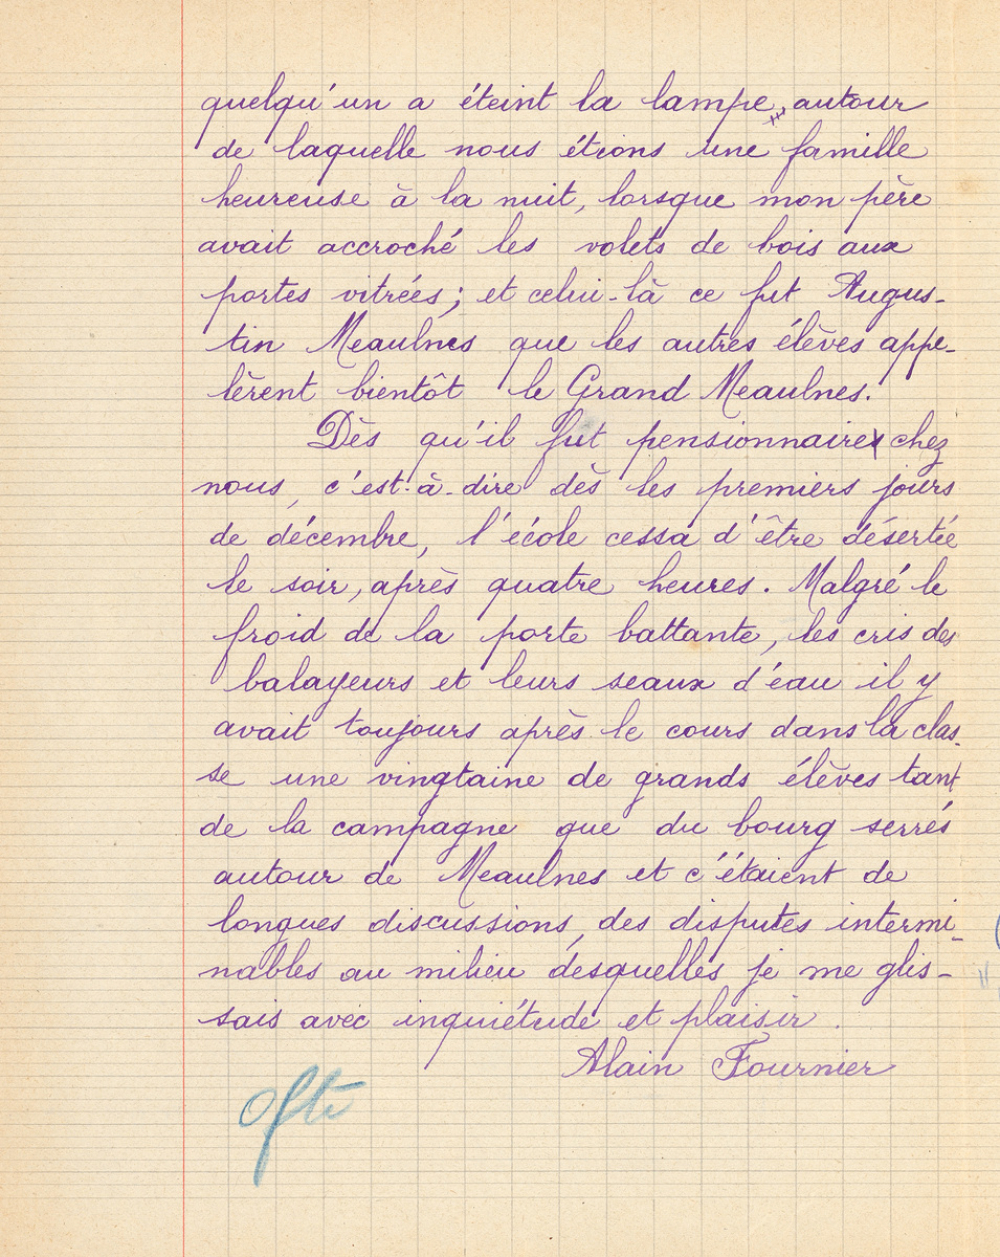 quelqu'un a éteint la lampe, autour
de laquelle nous étions une famille
heureuse à la nuit, lorsque mon père
avait accroché les volets de bois aux
portes vitrées ; et celui-là ce fut Augus-
tin Meaulnes que les autres élèves appe-
lèrent bientôt le Grand Meaulnes.
Dès qu'il fut pensionnaire chez
nous, c'est-à-dire dès les premiers jours
de décembre, l'école cessa d'être désertée
le soir, après quatre heures. Malgré le
froid de la porte battante, les cris des
balayeurs et leurs seaux d'eau il y
avait toujours après le cours dans la clas-
se une vingtaine de grands élèves tant
de la campagne que du bourg serrés
autour de Meaulnes et c'étaient de
longues discussions, des disputes intermi-
nables au milieu desquelles je me glis-
sais avec inquiétude et plaisir.
Alain Fournier
0fte